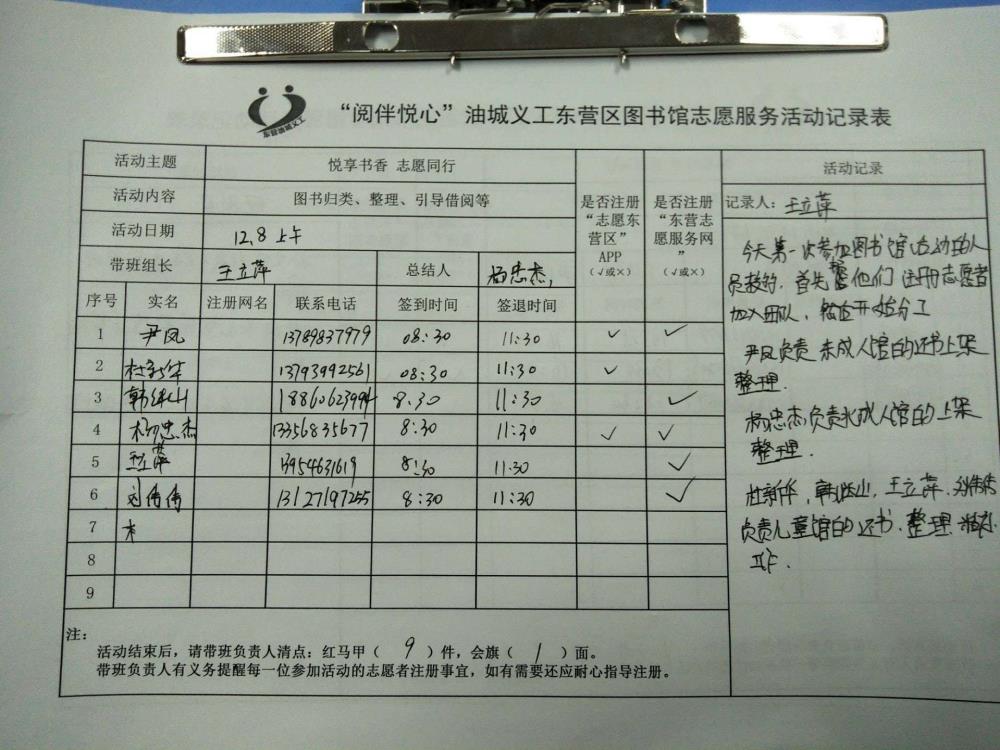 东营油城义工
“阅伴悦心”油城义工东营区图书馆志愿服务活动记录表
活动主题 悦享书香 志愿同行
活动内容 图书归类、整理、引导借阅等
活动日期 12.8 上午
带班组长 王立萍 总结人 杨忠杰,
是否注册“志愿东营区”APP(√或×)
是否注册“东营志愿服务网”(√或×)
序号 实名 注册网名 联系电话 签到时间 签退时间
1 尹凤 13789837979 08:30 11:30 ✓ ✓
2 杜新华 13793992561 08:30 11:30 ✓
3 韩继山 18860623994 8:30 11:30 ✓
4 杨忠杰 13356835677 8:30 11:30 ✓ ✓
5 王立萍 13954631619 8:30 11:30 ✓
6 刘伟伟 13127197255 8:30 11:30 ✓
7
8
9
注:
活动结束后，请带班负责人清点：红马甲（ 9 ）件，会旗（ 1 ）面。
带班负责人有义务提醒每一位参加活动的志愿者注册事宜，如有需要还应耐心指导注册。
活动记录
记录人：王立萍
今天第一次参加图书馆活动的人
员较多，首先帮他们注册志愿者
加入团队，然后开始分工
尹凤负责未成人馆的还书上架
整理.
杨忠杰负责成人馆的上架
整理.
杜新华，韩继山，王立萍，刘伟伟
负责儿童馆的还书、整理
工作.